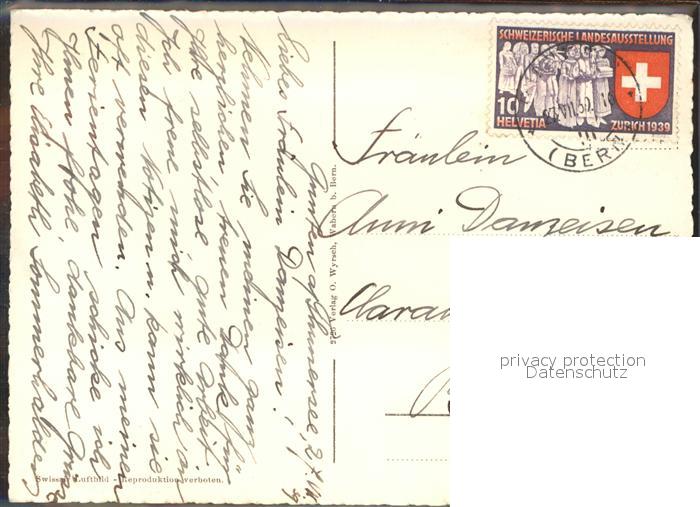 Gunten a/Thunersee, 27. VII. 39
Liebes Fräulein Dameisen!
Nehmen Sie meinen ganz
herzlichen, treuen Dank für
Ihre selbstlose, gute Arbeit.
Ich freue mich wirklich an
diesen Notizen u. kann sie
oft verwenden. Aus meinen
Ferientagen schicke ich
Ihnen frohe, dankbare Grüsse
Ihre Elisabeth Sommerhalder
Swissair Luftbild - Reproduktion verboten.
2725 Verlag O. Wyrsch, Wabern b. Bern.
SCHWEIZERISCHE LANDESAUSSTELLUNG
10
HELVETIA
ZÜRICH 1939
(BERN)
Fräulein
Anni Dameisen
privacy protection
Datenschutz